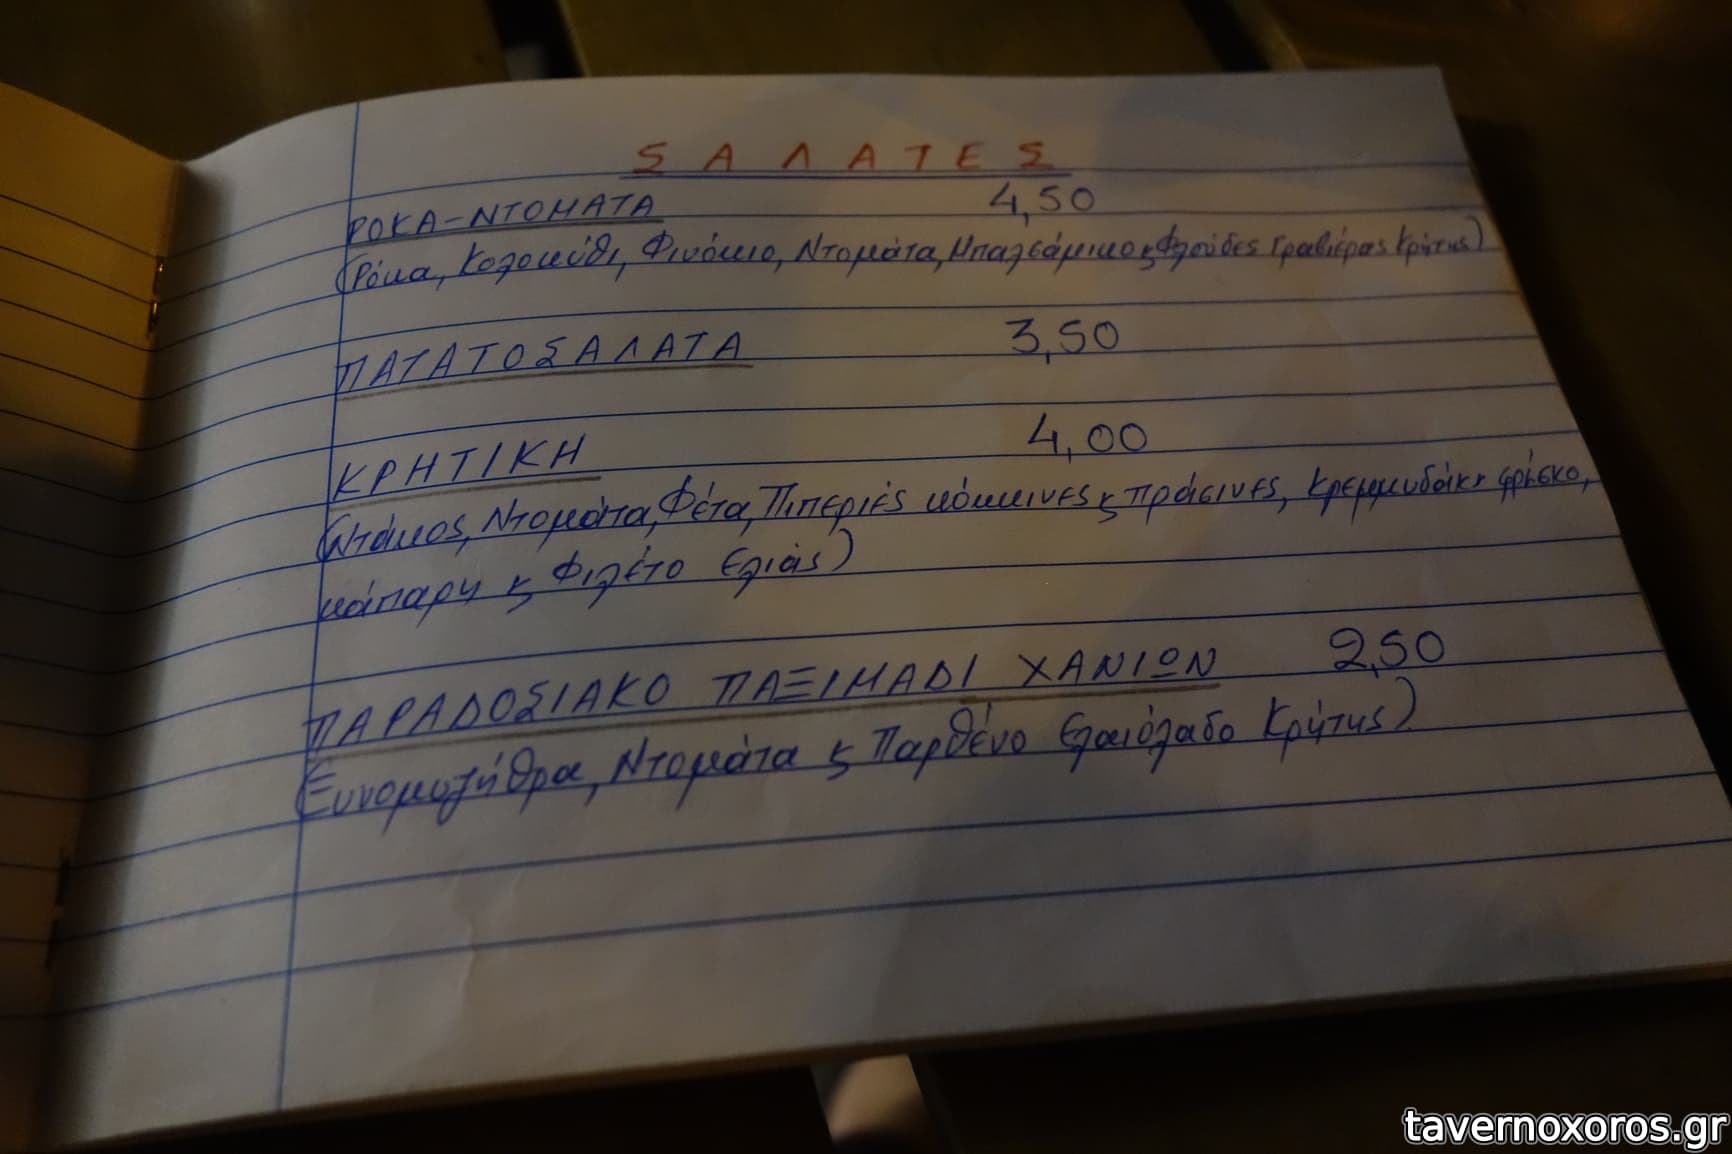 ΣΑΛΑΤΕΣ
ΡΟΚΑ-ΝΤΟΜΑΤΑ 4,50
(Ρόκα, Κολοκύθι, Φινόκιο, Ντομάτα, Μπαλσάμικο ϗ Φλούδες Γραβιέρας Κρήτης)
ΠΑΤΑΤΟΣΑΛΑΤΑ 3,50
ΚΡΗΤΙΚΗ 4,00
(Ντάκος, Ντομάτα, Φέτα, Πιπεριές κόκκινες ϗ πράσινες, Κρεμμυδάκι φρέσκο,
κάπαρη ϗ Φιλέτο Ελιάς)
ΠΑΡΑΔΟΣΙΑΚΟ ΠΑΞΙΜΑΔΙ ΧΑΝΙΩΝ 2,50
(Ξυνομυζήθρα, Ντομάτα ϗ Παρθένο Ελαιόλαδο Κρήτης)
tavernoxoros.gr